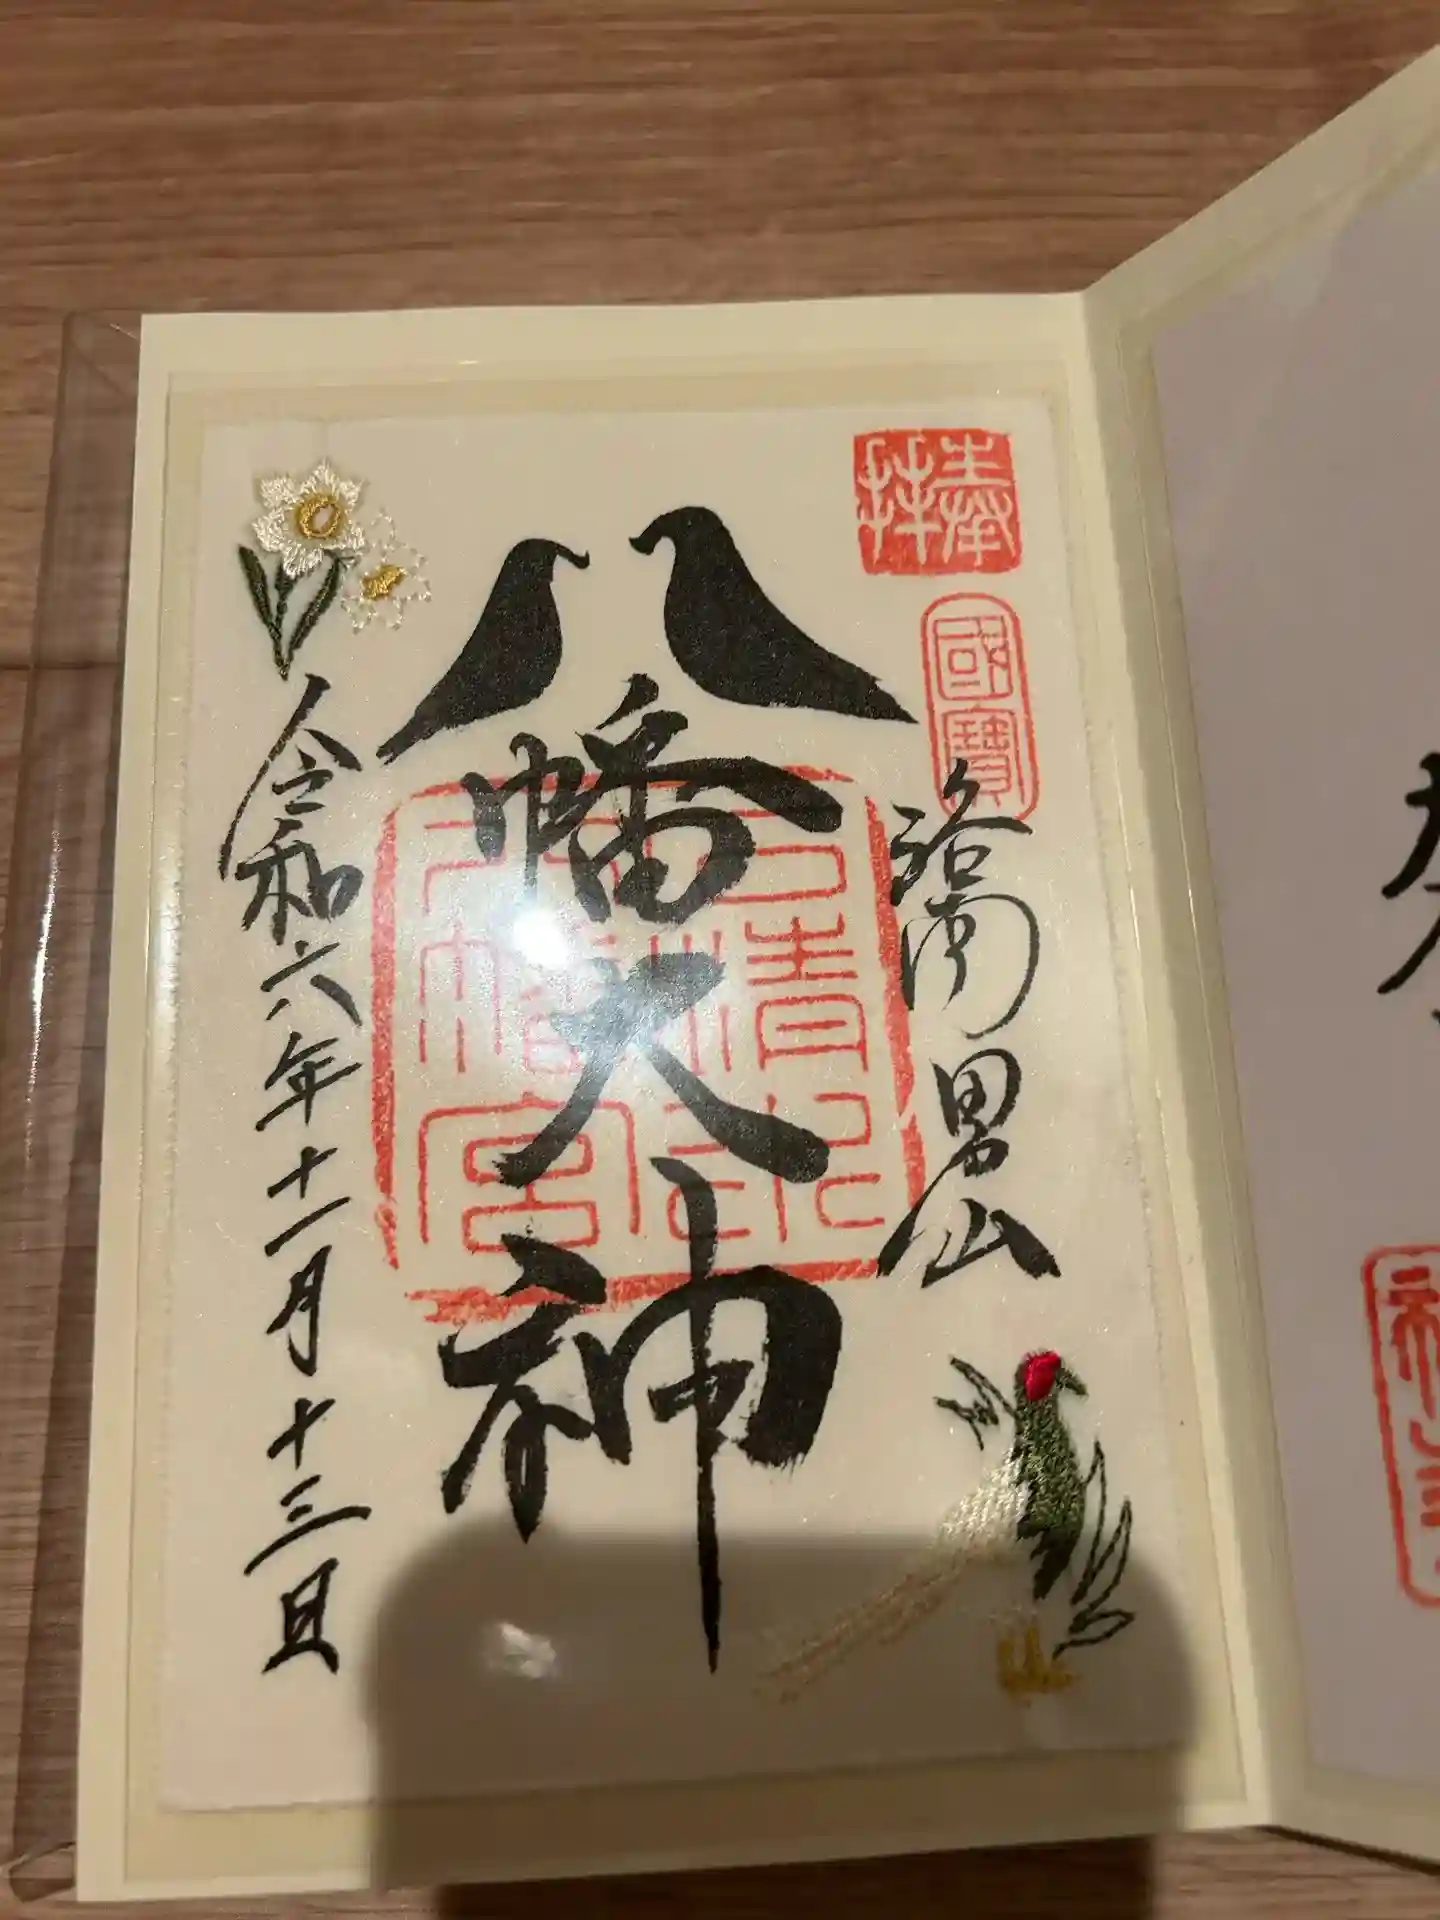 奉拝
國寶
洛南男山
八幡大神
石清水八幡宮
令和六年十一月十三日